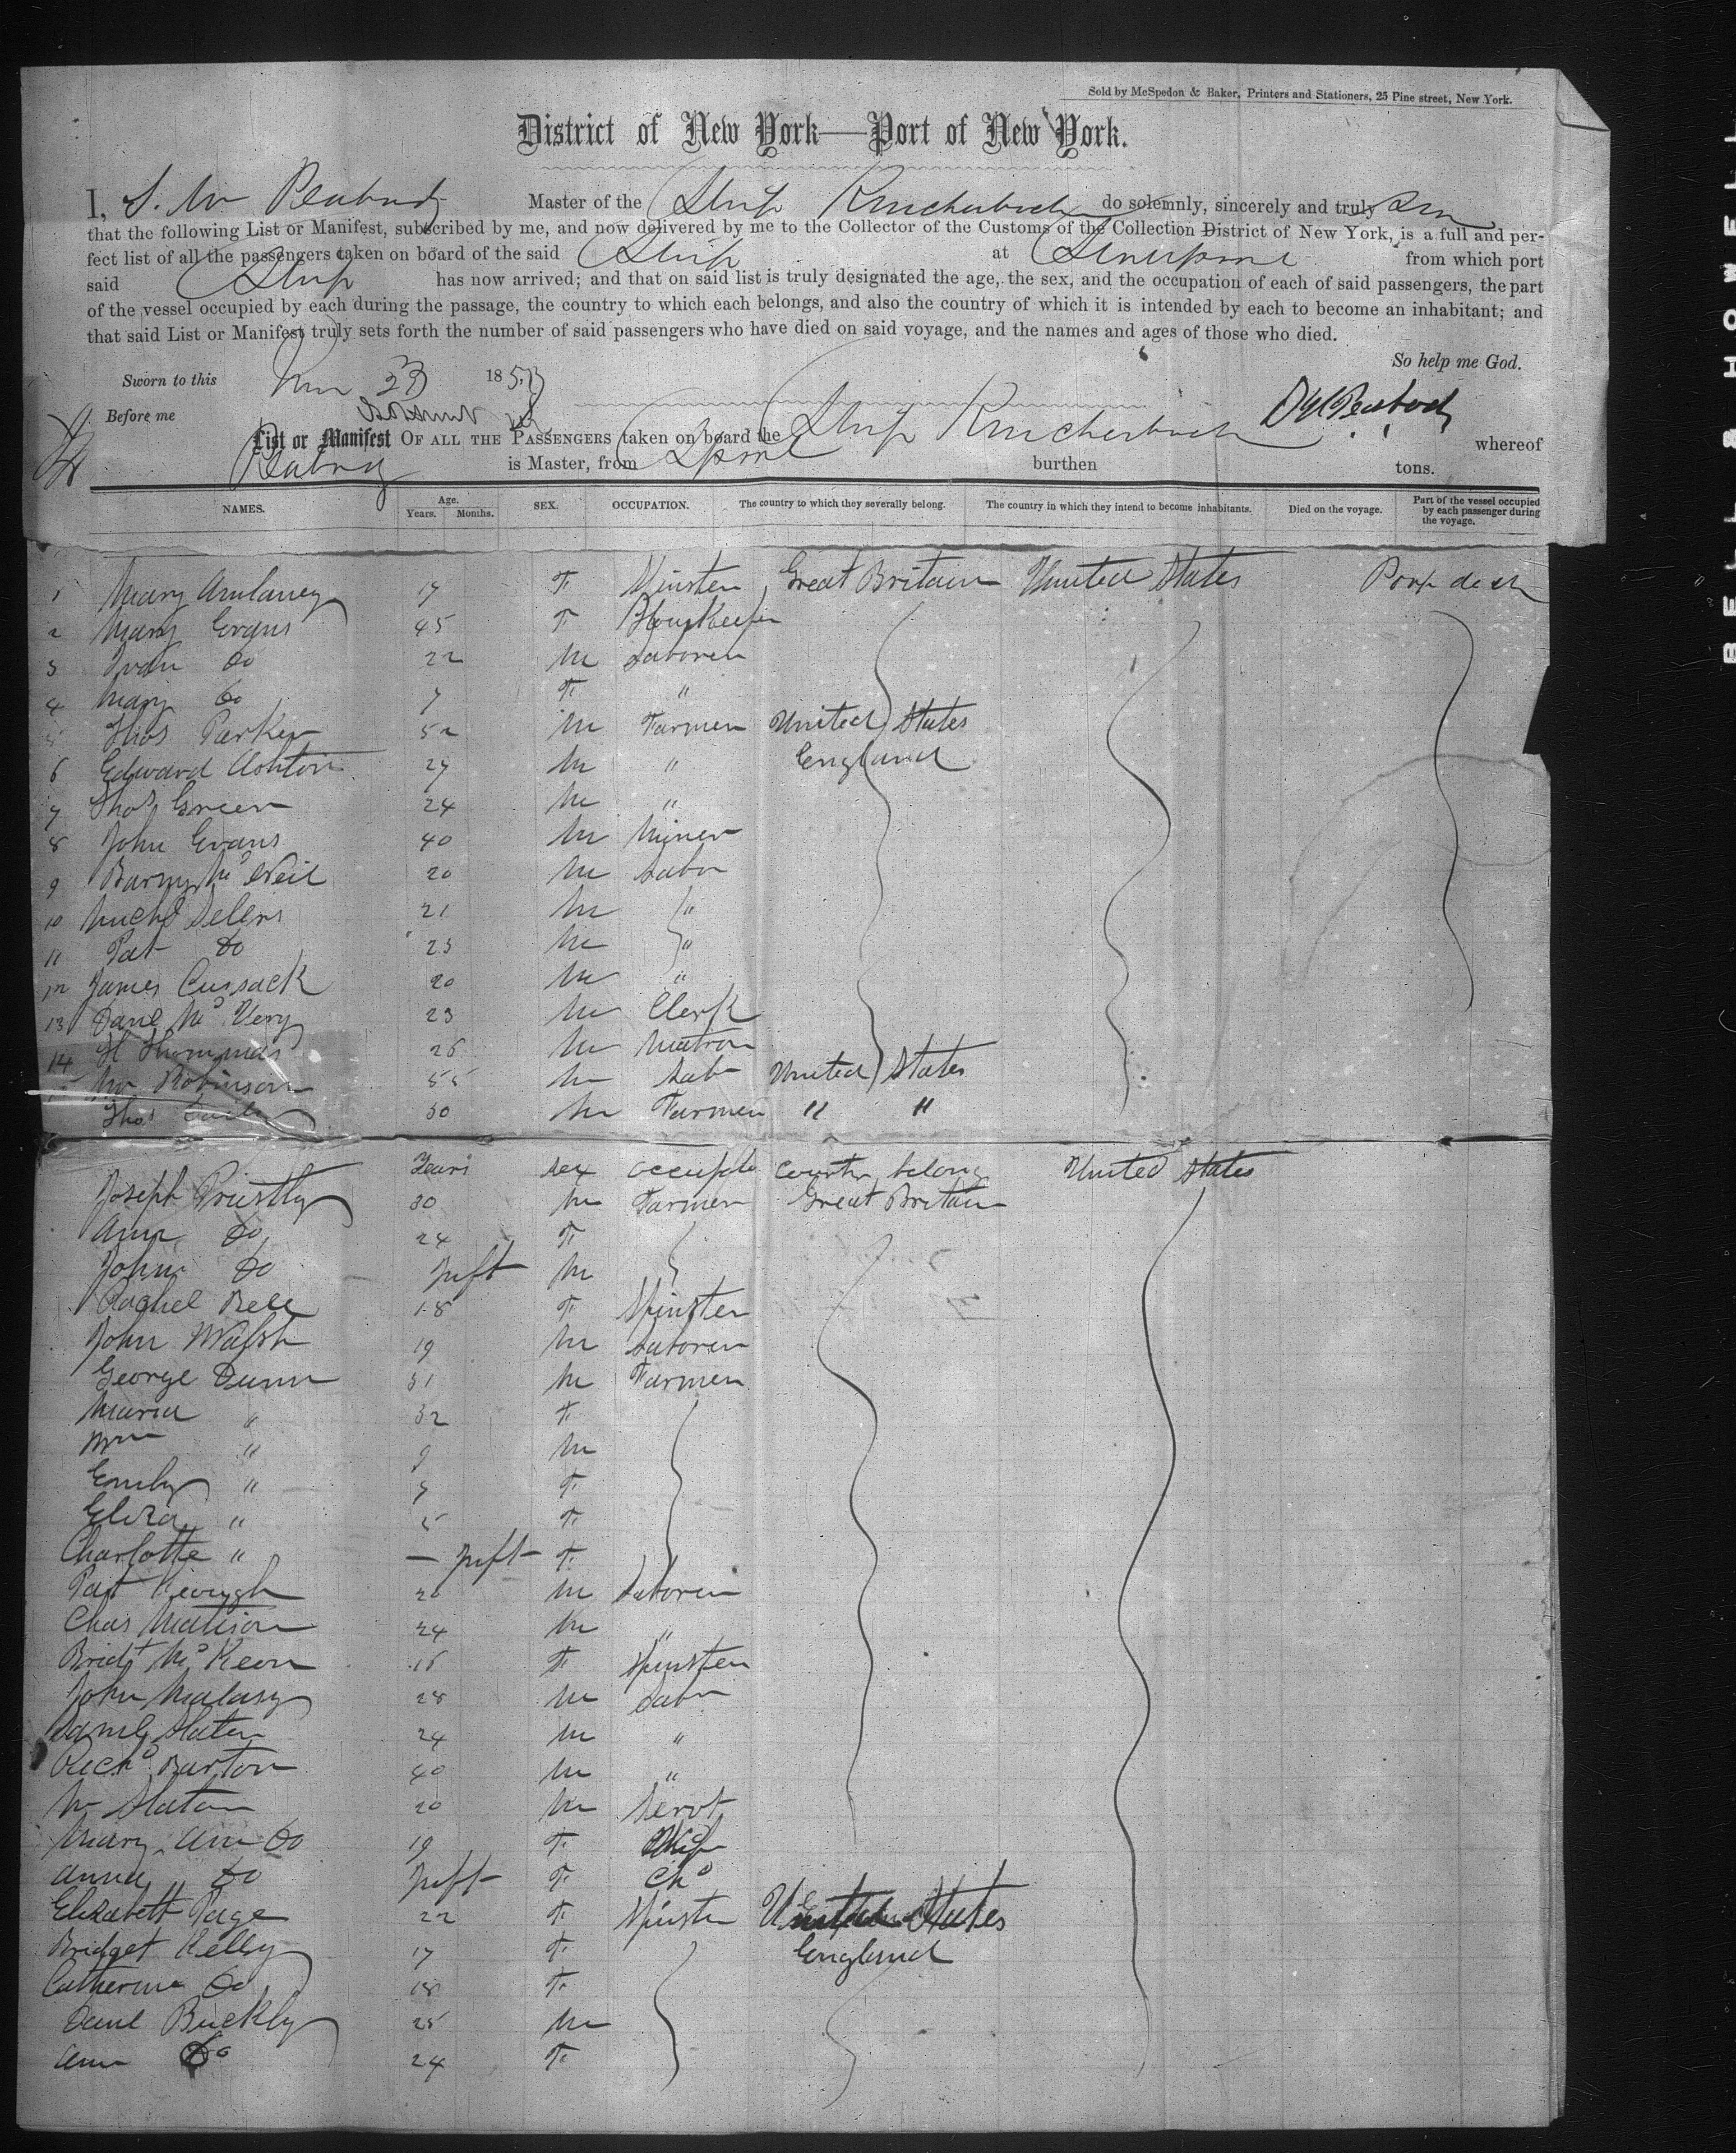 Sold by McSpedon & Baker, Printers and Stationers, 25 Pine street, New York.
District of New York—Port of New York.
I, Peabody Master of the Ship Knickerbocker do solemnly, sincerely and truly
that the following List or Manifest, subscribed by me, and now delivered by me to the Collector of the Customs of the Collection District of New York, is a full and per-
fect list of all the passengers taken on board of the said Ship at Liverpool from which port
said Ship has now arrived; and that on said list is truly designated the age, the sex, and the occupation of each of said passengers, the part
of the vessel occupied by each during the passage, the country to which each belongs, and also the country of which it is intended by each to become an inhabitant; and
that said List or Manifest truly sets forth the number of said passengers who have died on said voyage, and the names and ages of those who died.
So help me God.
Sworn to this 23 185
Before me Peabody
List or Manifest OF ALL THE PASSENGERS taken on board the Ship Knickerbocker whereof
Peabody is Master, from Lpool burthen tons.
NAMES. Age. Years. Months. SEX. OCCUPATION. The country to which they severally belong. The country in which they intend to become inhabitants. Died on the voyage. Part of the vessel occupied by each passenger during the voyage.
1 Mary 17 F Spinster Great Britain United States
2 Mary Evans 45 F HousKeeper
3 Do 22 M Laborer
4 Mary Do 7 F "
5 Thos Parker 52 M Farmer United States
6 Edward Ashton 27 M " England
7 Thos Green 24 M "
8 John Evans 40 M Miner
9 Barny McNeil 20 M Labor
10 Michl 21 M "
11 Pat Do 23 M "
12 James Cussack 20 M "
13 Danl McVery 23 M Clerk
14 Thommas 26 M
Robinson 55 M Lab United States
Thos 30 M Farmer " "
Years Sex Occupat Countr belong United States
Joseph Priestly 30 M Farmer Great Britain
Ann Do 24 F
John Do Inft M
Rachel Bell 18 F Spinster
John Walsh 19 M Laborer
George Dunn 31 M Farmer
Maria " 32 F
Wm " 9 M
Emily " 7 F
Eliza " 5 F
Charlotte " — Inft F
Pat Keough 20 M Laborer
Chas 24 M "
Bridt McKeon 16 F Spinster
John 28 M Labr
Saml Slater 24 M "
Richd Burton 40 M "
20 M Servt
Mary Ann Do 19 F Wife
Anna Do Inft F Chd
Elizabeth Page 22 F Spinster United States
Bridget Kelly 17 F England
Catherine Do 18 F
Danl Buckly 25 M
Ann Do 24 F
BELL & HOWELL